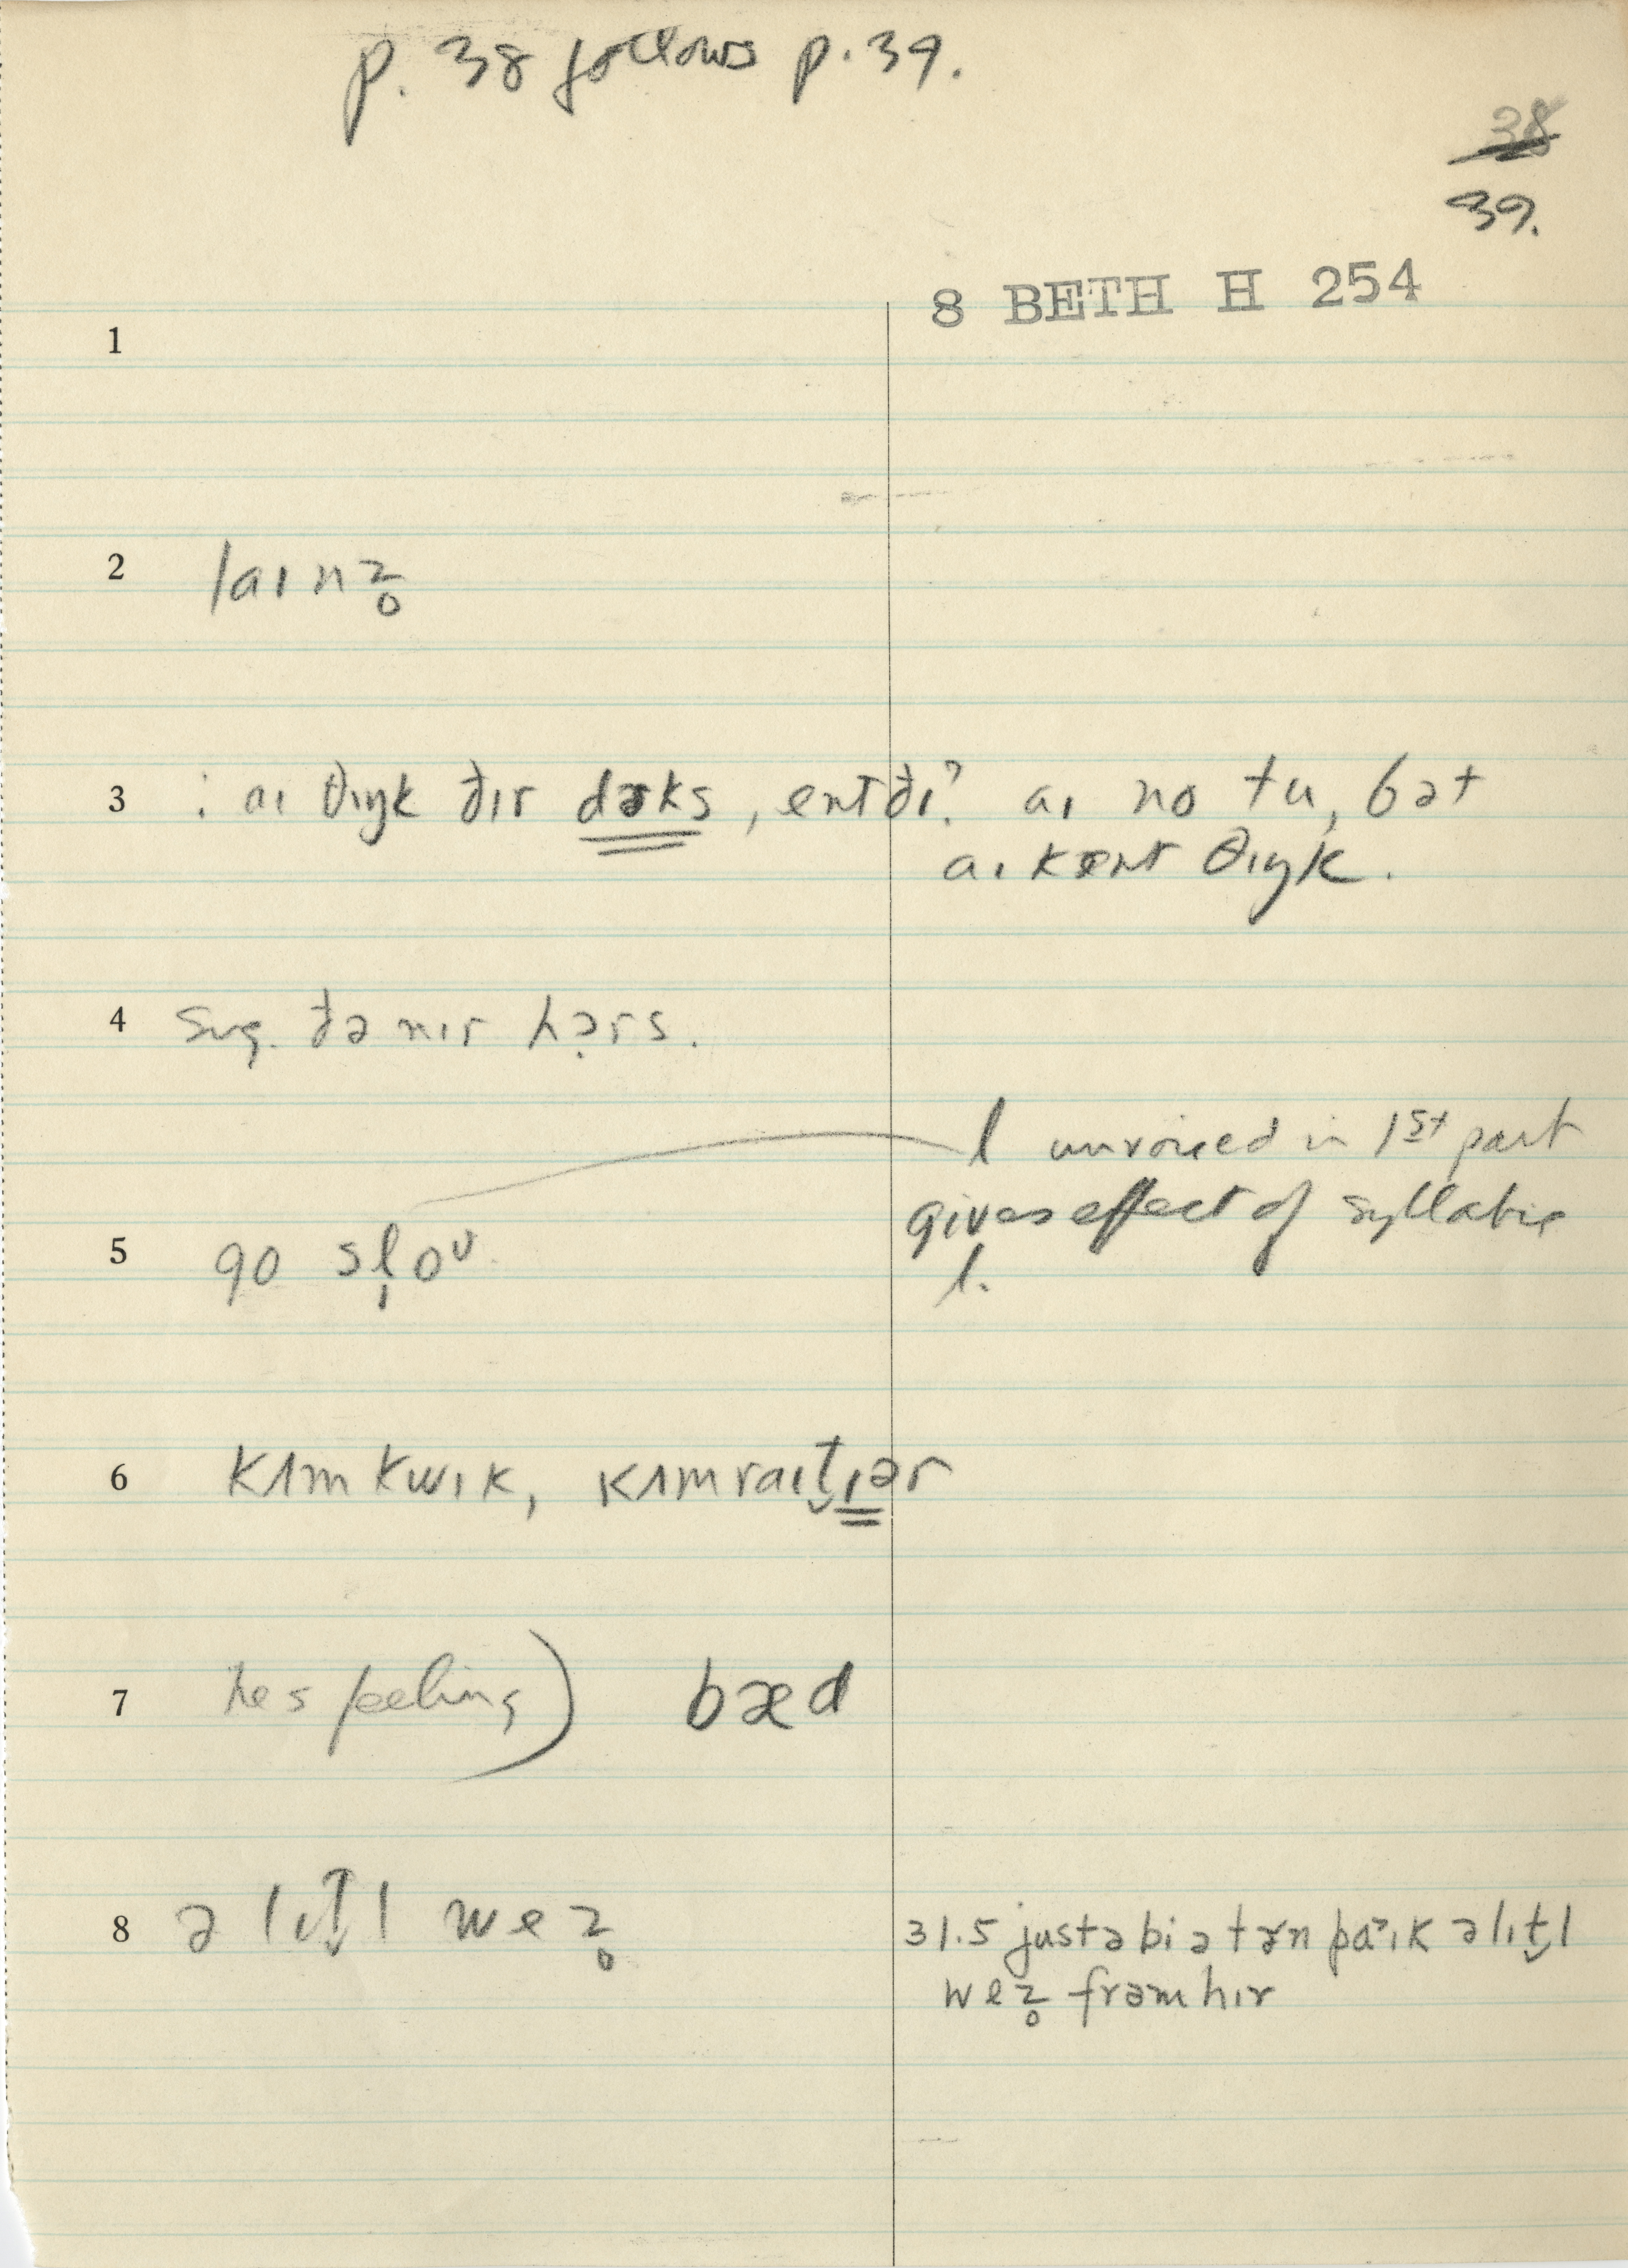 p. 38 follows p. 39.
38
39.
8 BETH H 254
1
2 laɪnz̥
3 : aɪ θɪŋk ðɪr dɚks, entðɪ? aɪ no tu, bət
aɪ kɛnt θɪŋk.
4 sng. ðə nɪr hə̣rs.
l unvoiced in 1st part
gives effect of syllabic
l.
5 go sl̩oᴜ
6 kʌm kwɪk, kʌm raɪt̬ɪər
7 hes feeling) bæd
8 ə lɪt̬l wez̥
31.5 justəbiətɚn paɪk əlɪt̬l
wez̥ frəm hɪr